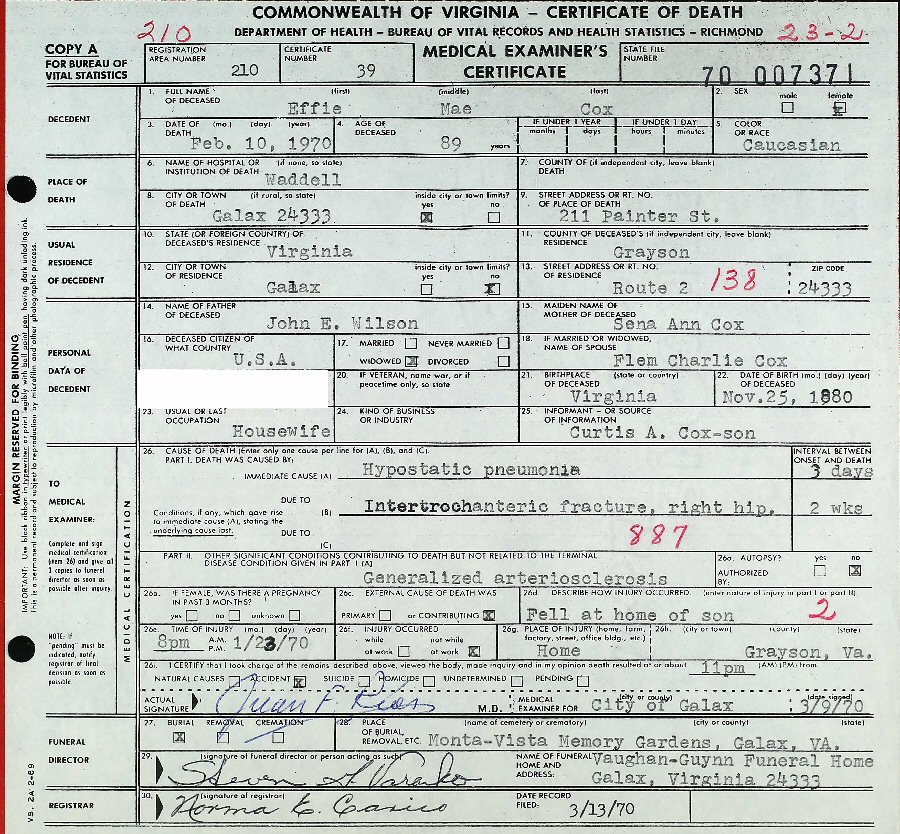 COMMONWEALTH OF VIRGINIA – CERTIFICATE OF DEATH
DEPARTMENT OF HEALTH – BUREAU OF VITAL RECORDS AND HEALTH STATISTICS – RICHMOND
210
23-2
COPY A
FOR BUREAU OF
VITAL STATISTICS
REGISTRATION
AREA NUMBER 210
CERTIFICATE
NUMBER 39
MEDICAL EXAMINER'S
CERTIFICATE
STATE FILE
NUMBER
70 007371
DECEDENT
1. FULL NAME (first) (middle) (last)
OF DECEASED Effie Mae Cox
2. SEX male female
x
3. DATE OF (mo.) (day) (year)
DEATH Feb. 10, 1970
4. AGE OF
DECEASED 89 years
IF UNDER 1 YEAR IF UNDER 1 DAY
months days hours minutes
5. COLOR
OR RACE Caucasian
PLACE OF
DEATH
6. NAME OF HOSPITAL OR (if none, so state)
INSTITUTION OF DEATH Waddell
7. COUNTY OF (if independent city, leave blank)
DEATH
8. CITY OR TOWN (if rural, so state) inside city or town limits?
OF DEATH yes no
Galax 24333 x
9. STREET ADDRESS OR RT. NO.
OF PLACE OF DEATH
211 Painter St.
USUAL
RESIDENCE
OF DECEDENT
10. STATE (OR FOREIGN COUNTRY) OF
DECEASED'S RESIDENCE Virginia
11. COUNTY OF DECEASED'S (if independent city, leave blank)
RESIDENCE Grayson
12. CITY OR TOWN inside city or town limits?
OF RESIDENCE yes no
Galax x
13. STREET ADDRESS OR RT. NO. ZIP CODE
OF RESIDENCE
Route 2 138 24333
PERSONAL
DATA OF
DECEDENT
14. NAME OF FATHER
OF DECEASED
John E. Wilson
15. MAIDEN NAME OF
MOTHER OF DECEASED
Sena Ann Cox
16. DECEASED CITIZEN OF
WHAT COUNTRY
U.S.A.
17. MARRIED NEVER MARRIED
WIDOWED x DIVORCED
18. IF MARRIED OR WIDOWED,
NAME OF SPOUSE
Flem Charlie Cox
20. IF VETERAN, name war, or if
peacetime only, so state
21. BIRTHPLACE (state or country)
OF DECEASED
Virginia
22. DATE OF BIRTH (mo.) (day) (year)
OF DECEASED
Nov.25, 1880
23. USUAL OR LAST
OCCUPATION
Housewife
24. KIND OF BUSINESS
OR INDUSTRY
25. INFORMANT – OR SOURCE
OF INFORMATION
Curtis A. Cox-son
TO
MEDICAL
EXAMINER:
Complete and sign
medical certification
(item 26) and give all
3 copies to funeral
director as soon as
possible after inquiry.
NOTE: If
"pending" must be
indicated, notify
registrar of final
decision as soon as
possible
MEDICAL CERTIFICATION
26. CAUSE OF DEATH (Enter only one cause per line for (A), (B), and (C).
PART I. DEATH WAS CAUSED BY:
INTERVAL BETWEEN
ONSET AND DEATH
IMMEDIATE CAUSE (A) Hypostatic pneumonia 3 days
DUE TO
Conditions, if any, which gave rise
to immediate cause (A), stating the
underlying cause last.
(B) Intertrochanteric fracture, right hip. 2 wks
DUE TO
(C)
887
PART II. OTHER SIGNIFICANT CONDITIONS CONTRIBUTING TO DEATH BUT NOT RELATED TO THE TERMINAL
DISEASE CONDITION GIVEN IN PART I (A)
Generalized arteriosclerosis
26a. AUTOPSY? yes no
AUTHORIZED
BY: x
26b. IF FEMALE, WAS THERE A PREGNANCY
IN PAST 3 MONTHS?
yes no unknown
26c. EXTERNAL CAUSE OF DEATH WAS
PRIMARY or CONTRIBUTING x
26d. DESCRIBE HOW INJURY OCCURRED. (enter nature of injury in part I or part II)
Fell at home of son 2
26e. TIME OF INJURY (mo.) (day) (year)
8pm A.M. P.M. 1/23/70
26f. INJURY OCCURRED
while not while
at work at work x
26g. PLACE OF INJURY (home, farm,
factory, street, office bldg., etc.)
Home
26h. (city or town) (county) (state)
Grayson, Va.
26i. I CERTIFY that I took charge of the remains described above, viewed the body, made inquiry and in my opinion death resulted at or about 11pm (AM) (PM) from
NATURAL CAUSES ACCIDENT x SUICIDE HOMICIDE UNDETERMINED PENDING
ACTUAL
SIGNATURE Juan F. Rios M.D.
MEDICAL
EXAMINER FOR (city or county)
City of Galax
(date signed)
3/9/70
FUNERAL
DIRECTOR
27. BURIAL REMOVAL CREMATION
x
28. PLACE
OF BURIAL,
REMOVAL, ETC.
(name of cemetery or crematory) (city or county) (state)
Monta-Vista Memory Gardens, Galax, VA.
29. (signature of funeral director or person acting as such)
NAME OF FUNERAL
HOME AND
ADDRESS:
Vaughan-Guynn Funeral Home
Galax, Virginia 24333
REGISTRAR
30. (signature of registrar)
Norma E.
DATE RECORD
FILED: 3/13/70
MARGIN RESERVED FOR BINDING
IMPORTANT: Use black ribbon in typewriter or print legibly with ball point pen having dark unfading ink.
This is a permanent record and subject to reproduction by microfilm and other photographic process.
VS. 2A 2-69